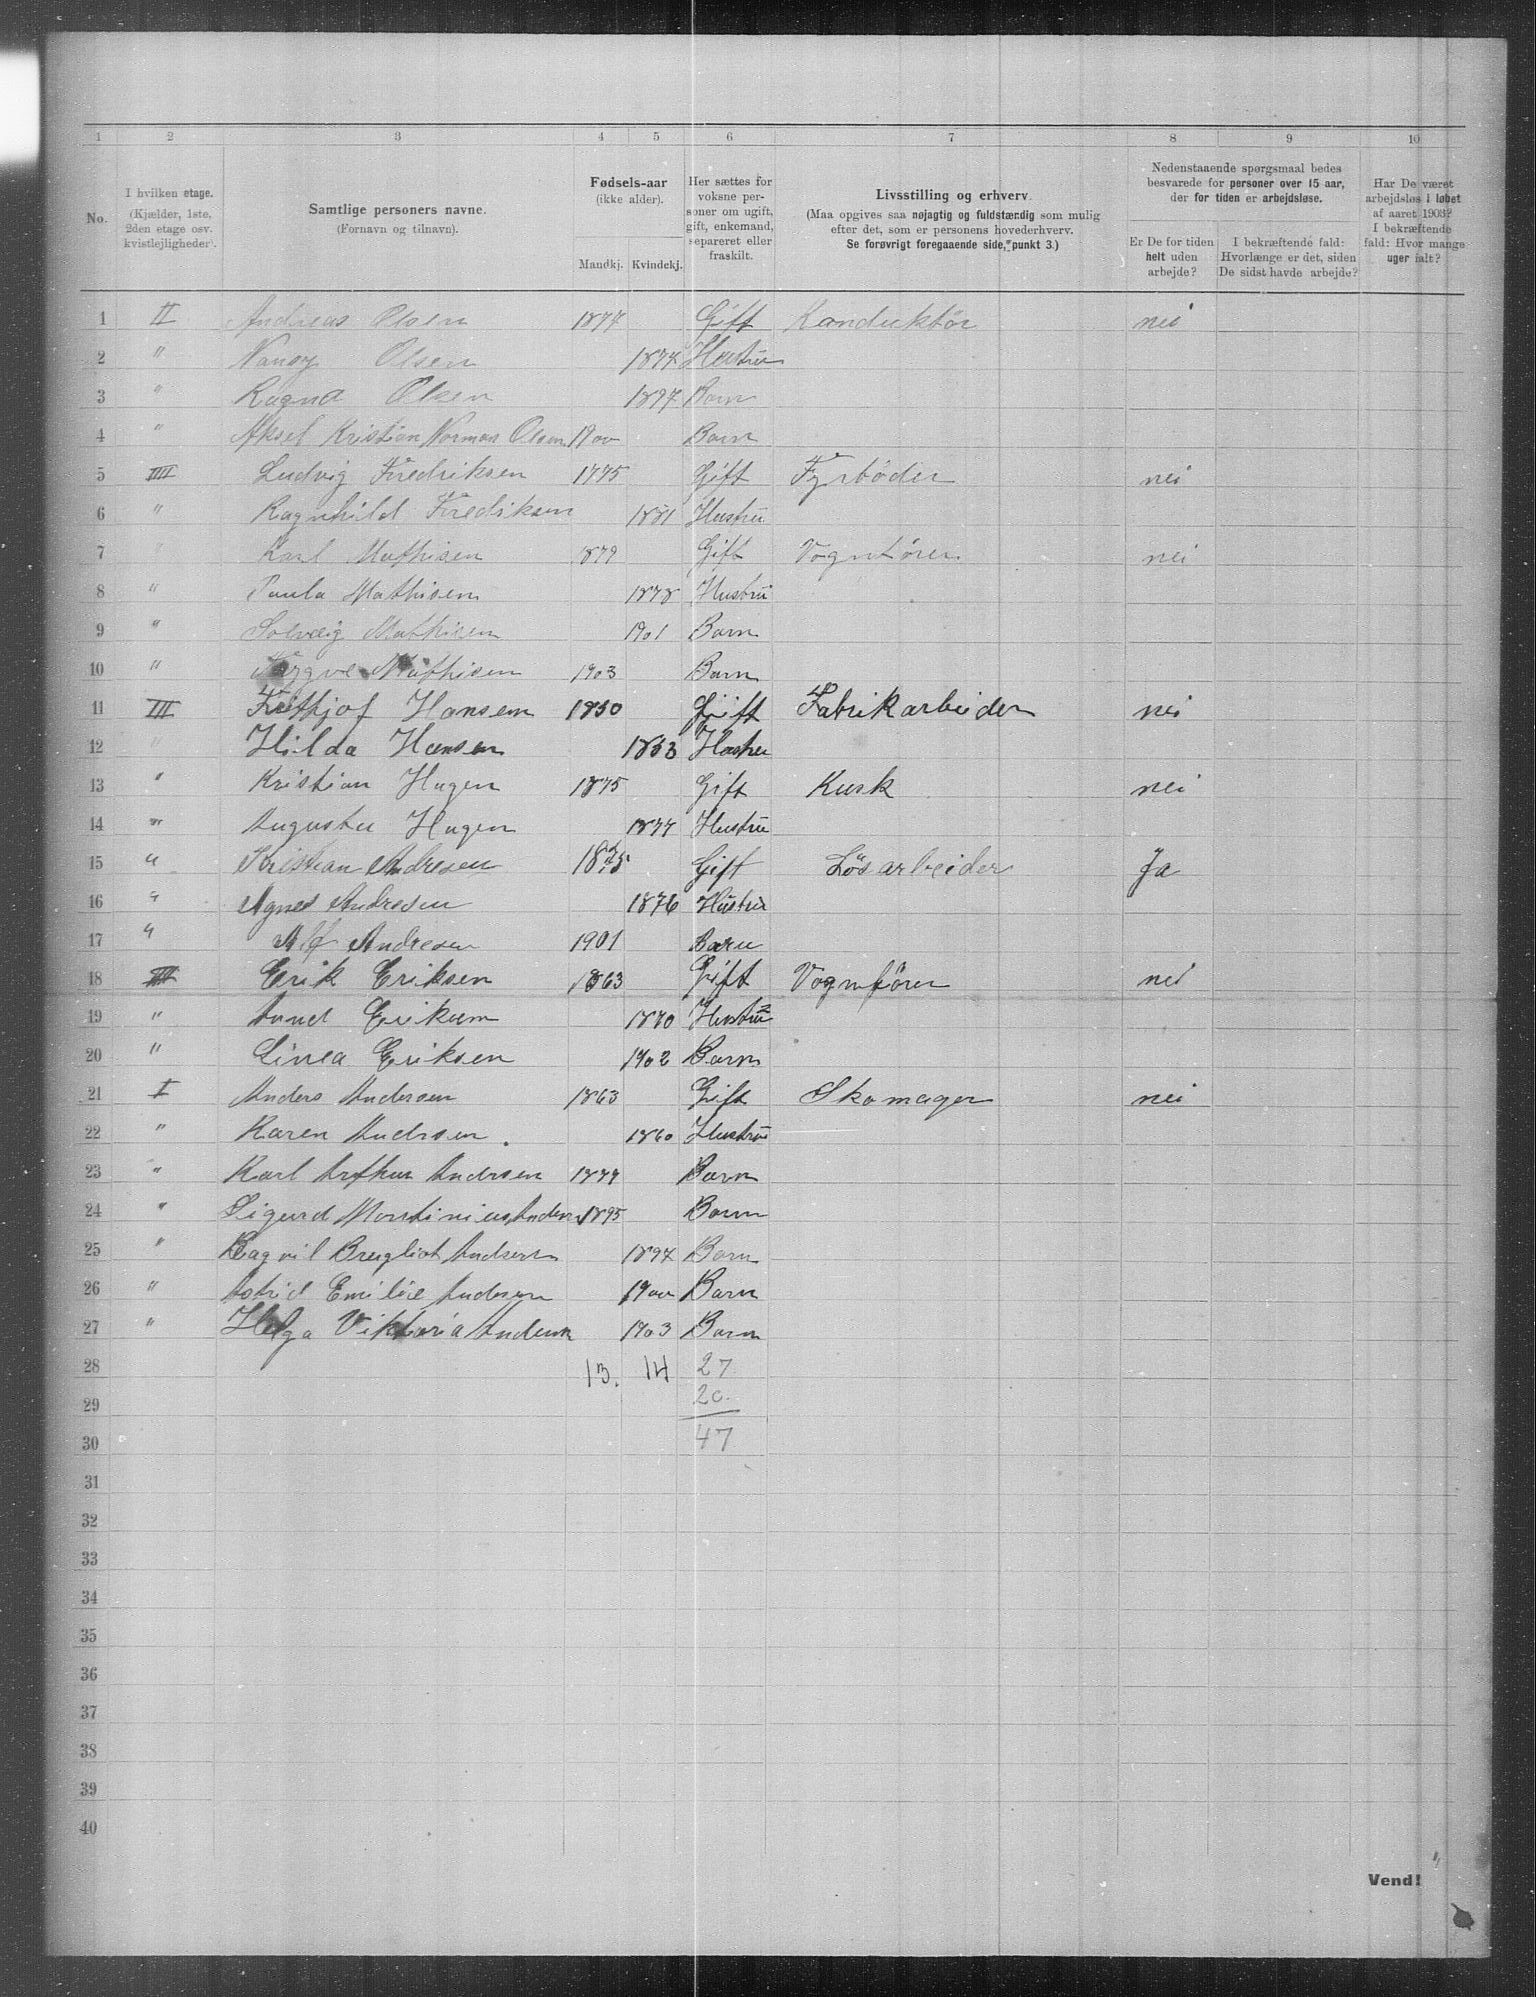 1 2 3 4 5 6 7 8 9 10
No.
I hvilken etage.
(Kjælder, 1ste,
2den etage osv.
kvistlejligheder).
Samtlige personers navne.
(Fornavn og tilnavn).
Fødsels-aar
(ikke alder).
Mandkj. Kvindekj.
Her sættes for
voksne per-
soner om ugift,
gift, enkemand,
separeret eller
fraskilt.
Livsstilling og erhverv.
(Maa opgives saa nøjagtig og fuldstændig som mulig
efter det, som er personens hovederhverv.
Se forøvrigt foregaaende side, punkt 3.)
Nedenstaaende spørgsmaal bedes
besvarede for personer over 15 aar,
der for tiden er arbejdsløse.
Er De for tiden
helt uden
arbejde?
I bekræftende fald:
Hvorlænge er det, siden
De sidst havde arbejde?
Har De været
arbejdsløs i løbet
af aaret 1903?
I bekræftende
fald: Hvor mange
uger ialt?
1 II Andreas Olsen 1877 Gift Konduktör nei
2 " Nancy Olsen 1874 Hustru
3 " Ragna Olsen 1897 Barn
4 " Aksel Kristian Norman Olsen 1900 Barn
5 IIII Ludvig Fredriksen 1775 Gift Fyrböder nei
6 " Ragnhild Frediksen 1881 Hustrü
7 " Karl Mathisen 1879 Gift Vognförer nei
8 " Paula Mathisen 1878 Hustrü
9 " Solveig Mathisen 1901 Barn
10 " Trygve Mathisen 1903 Barn
11 III Frithjof Hansen 1850 Gift Fabrikarbeider nei
12 " Hilda Hansen 1853 Hustru
13 " Kristian Hagen 1875 Gift Kusk nei
14 " Augusta Hagen 1877 Hustrü
15 " Kristian Andresen Gift Lösarbeider Ja
16 " Agnes Andresen 1876 Hüstru
17 " Alf Andresen 1901 Barn
18 Erik Eriksen 1863 Gift Vognförer nei
19 " Eriksen 1870 Hustrü
20 " Linea Eriksen 1902 Barn
21 I Anders Andersen 1863 Gift Skomager nei
22 " Karen Andersen 1860 Hustrü
23 " Karl Arthur Andersen Barn
24 " Sigurd Martinius Andersen 1895 Barn
25 " Andersen 1897 Barn
26 " Astrid Emilie Andersen 1900 Barn
27 " Helga Viktoria Andersen 1903 Barn
28 13. 14 27
29 20.
30 47
31
32
33
34
35
36
37
38
39
40
Vend!